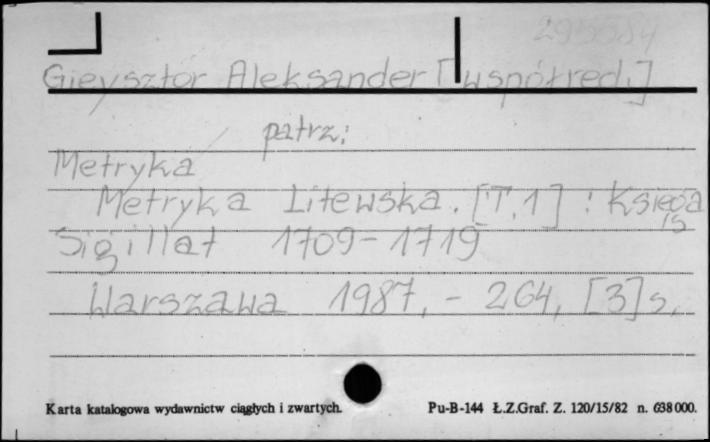 295584
Gieysztor Aleksander [współred.]
patrz:
Metryka
Metryka Litewska. [T.1] : Księga
Sigillat 1709-1719
Warszawa 1987, - 264, [3] s.
Karta katalogowa wydawnictw ciągłych i zwartych. Pu-B-144 Ł.Z.Graf. Z. 120/15/82 n. 638 000.